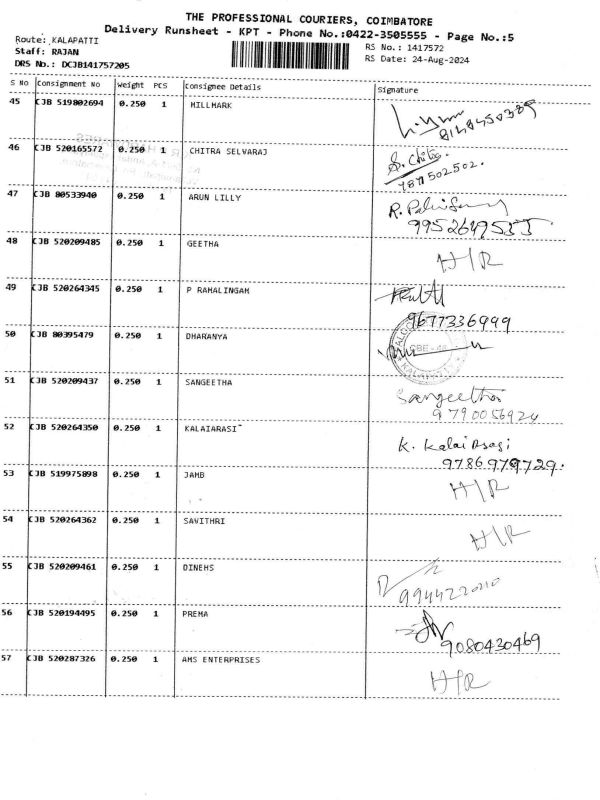 THE PROFESSIONAL COURIERS, COIMBATORE
Delivery Runsheet - KPT - Phone No.:0422-3505555 - Page No.:5
Route: KALAPATTI
RS No.: 1417572
Staff: RAJAN
RS Date: 24-Aug-2024
DRS No.: DCJB141757205
S No Consignment No Weight PCS Consignee Details Signature
45 CJB 519802694 0.250 1 HILLMARK
8148450385
46 CJB 520165572 0.250 1 CHITRA SELVARAJ S. Chitra
7871502502.
47 CJB 80533940 0.250 1 ARUN LILLY
9952649555
48 CJB 520209485 0.250 1 GEETHA H/R
49 CJB 520264345 0.250 1 P RAMALINGAM
9677336999
50 CJB 80395479 0.250 1 DHARANYA
51 CJB 520209437 0.250 1 SANGEETHA Sangeetha
9790056924
52 CJB 520264350 0.250 1 KALAIARASI K. Kalai Arasi
9786979729.
53 CJB 519975898 0.250 1 JAMB H/R
54 CJB 520264362 0.250 1 SAVITHRI H/R
55 CJB 520209461 0.250 1 DINEHS
9944220210
56 CJB 520194495 0.250 1 PREMA
9080430469
57 CJB 520287326 0.250 1 AMS ENTERPRISES H/R